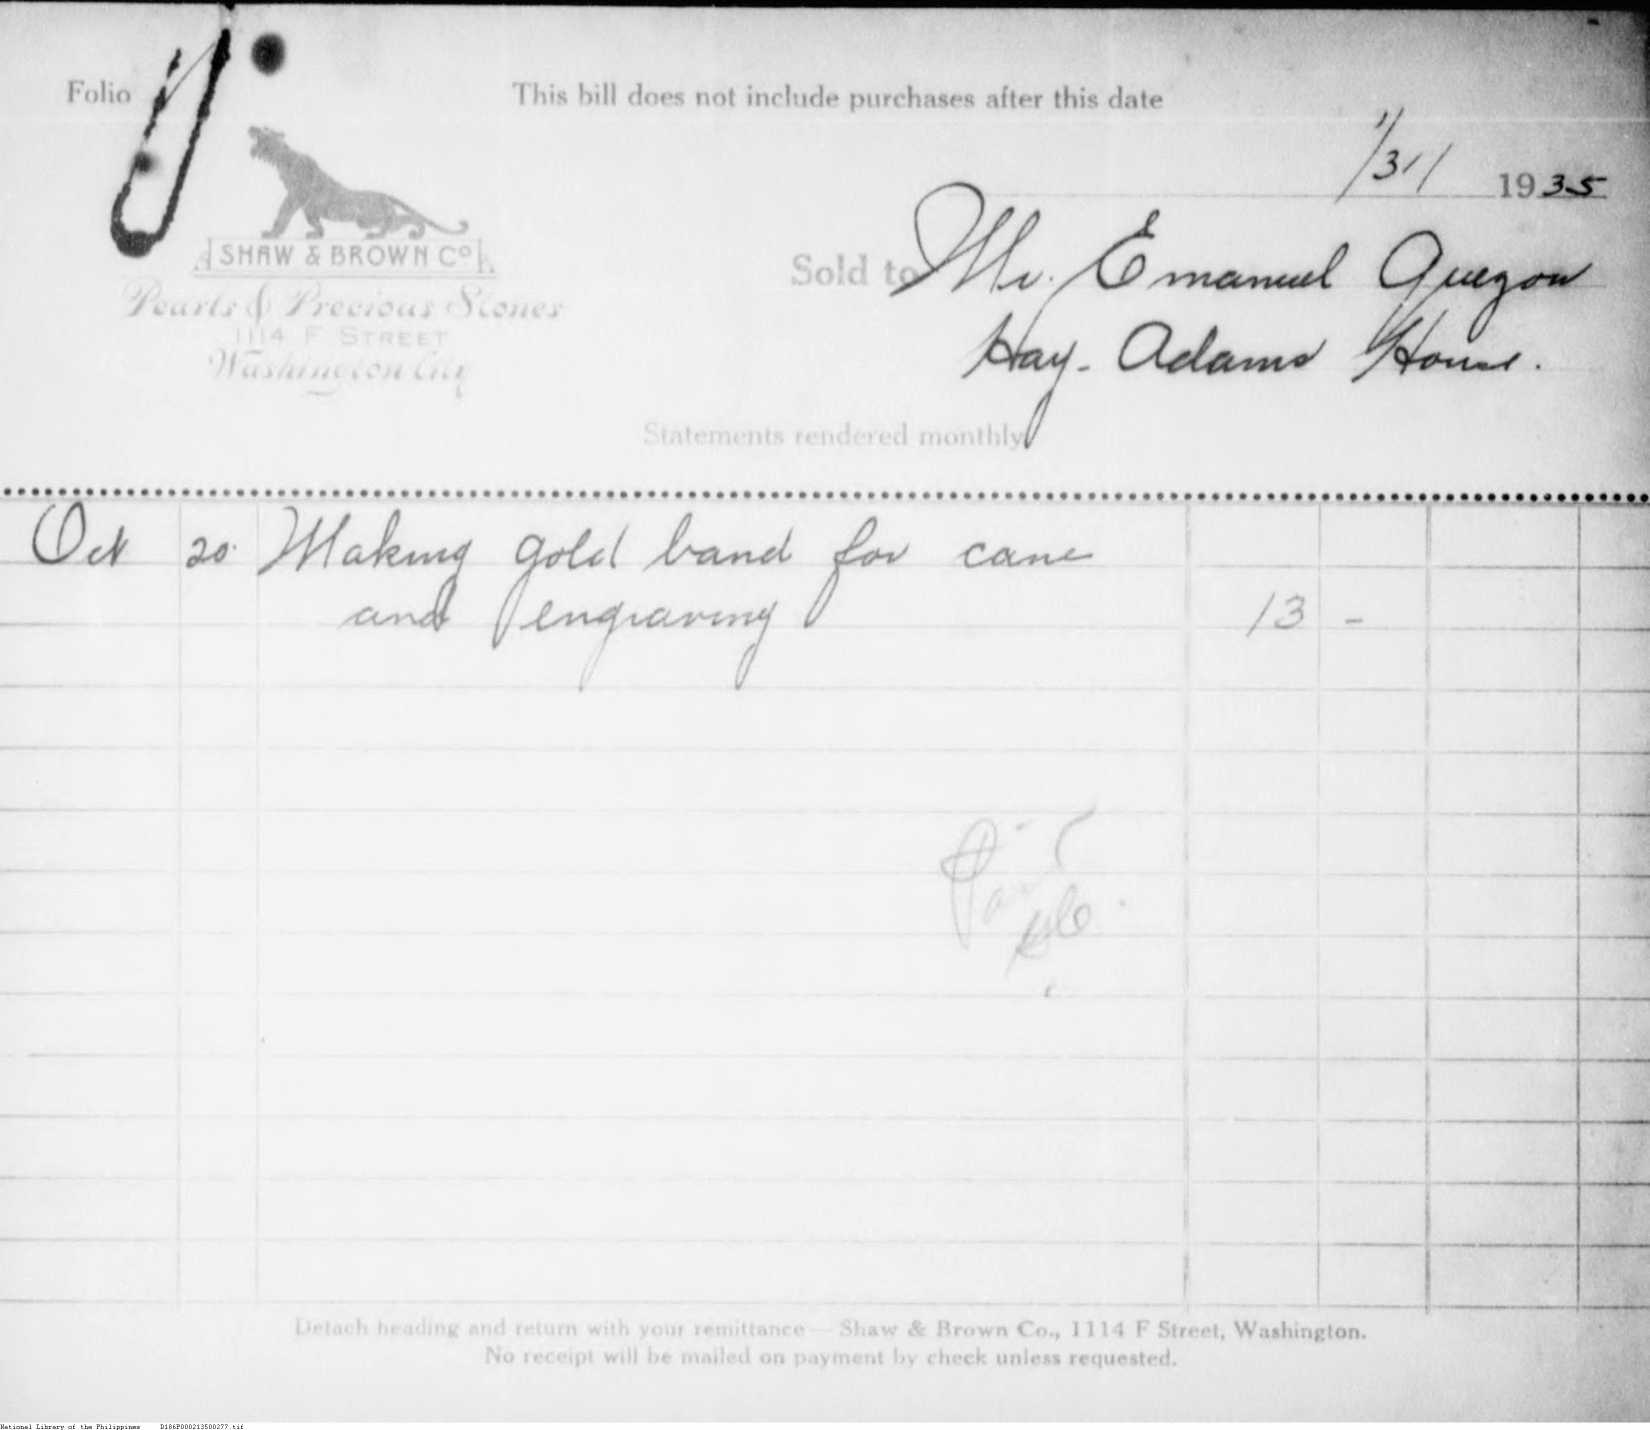 Folio
This bill does not include purchases after this date
1/31/ 1935
SHAW & BROWN Co
Pearls & Precious Stones
1114 F STREET
Washington City
Sold to Mr. Emanuel Quezon
Hay-Adams House.
Statements rendered monthly
Oct 20 Making gold band for cane
and engraving 13 -
Paid
Detach heading and return with your remittance — Shaw & Brown Co., 1114 F Street, Washington.
No receipt will be mailed on payment by check unless requested.
National Library of the Philippines D186P000213500277.tif